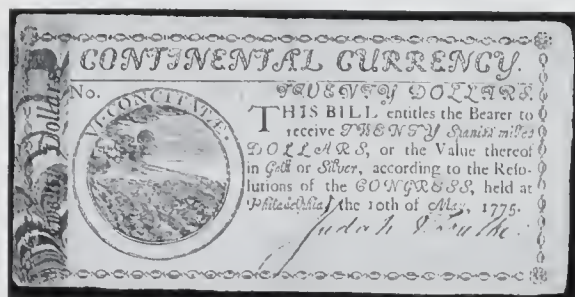 CONTINENTAL CURRENCY.
No.
TWENTY DOLLARS.
VI CONCITATÆ
THIS BILL entitles the Bearer to
receive TWENTY Spanish milled
DOLLARS, or the Value thereof
in Gold or Silver, according to the Reso-
lutions of the CONGRESS, held at
Philadelphia, the 10th of May, 1775.
Judah
Dollars